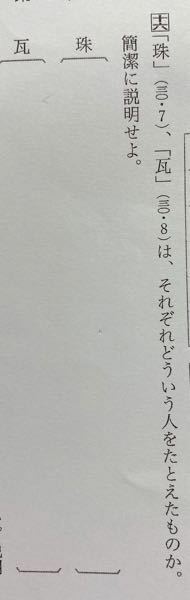 十六「珠」(三〇・7)、「瓦」(三〇・8)は、それぞれどういう人をたとえたものか。
簡潔に説明せよ。
珠
瓦